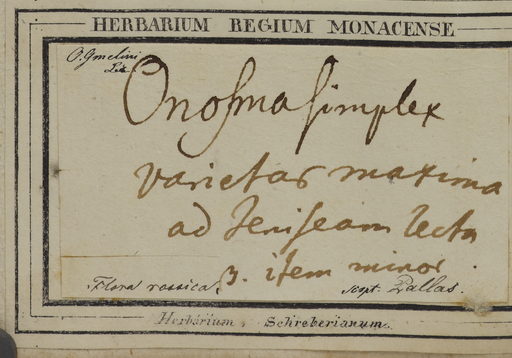 HERBARIUM REGIUM MONACENSE
O. Gmelini
Led.
Onosma simplex
varietas maxima
ad Jeniseam lecta
3. item minor
Flora rossica. scpt. Pallas.
Herbarium Schreberianum.